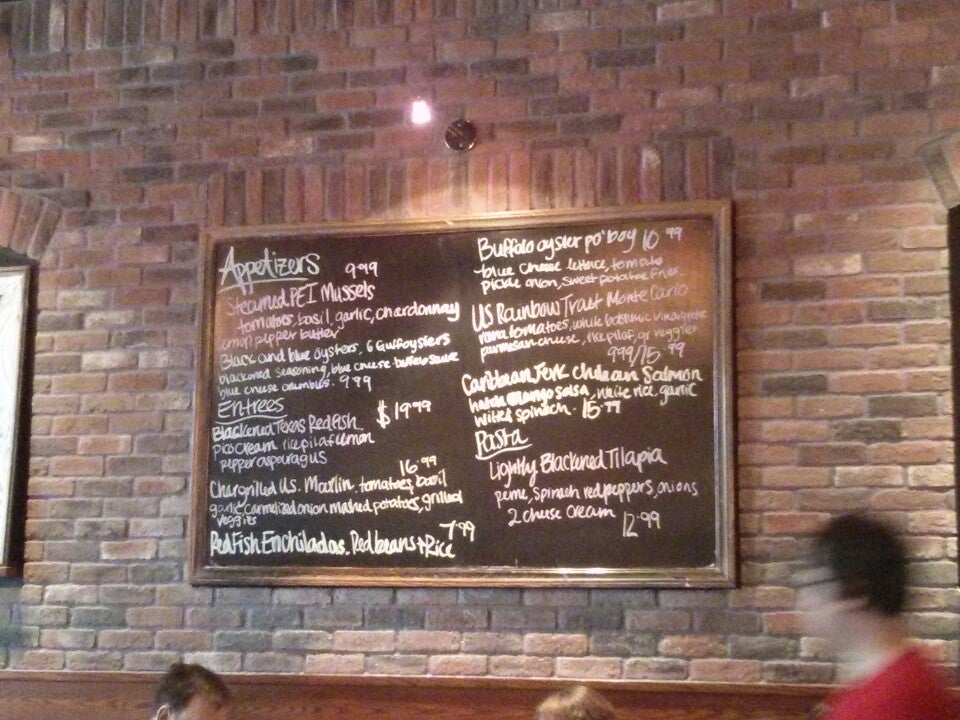 Appetizers 9.99
Steamed PEI Mussels
tomatoes, basil, garlic, chardonnay
lemon pepper butter
Black and blue oysters, 6 Gulf oysters
blackened seasoning, blue cheese buffalo sauce
blue cheese crumbles. 9.99
Entrees
$19.99
Blackened Texas Redfish
Pico cream rice pilaf lemon
pepper asparagus
16.99
Chargrilled U.S. Marlin, tomatoes, basil
garlic, carmelized onion mashed potatoes, grilled
veggies
7.99
RedFish Enchiladas, Red beans + Rice
Buffalo oyster po'boy 10.99
blue cheese lettuce, tomato
pickle onion, sweet potatoe fries
US Rainbow Trout Monte Carlo
roma tomatoes, white balsamic vinaigrette
parmesan cheese, rice pilaf, gr veggies
999/15.99
Caribbean Jerk Chilean Salmon
mango salsa, white rice, garlic
wilted spinach. 15.99
Pasta
Lightly Blackened Tilapia
penne, spinach red peppers, onions
2 cheese cream 12.99